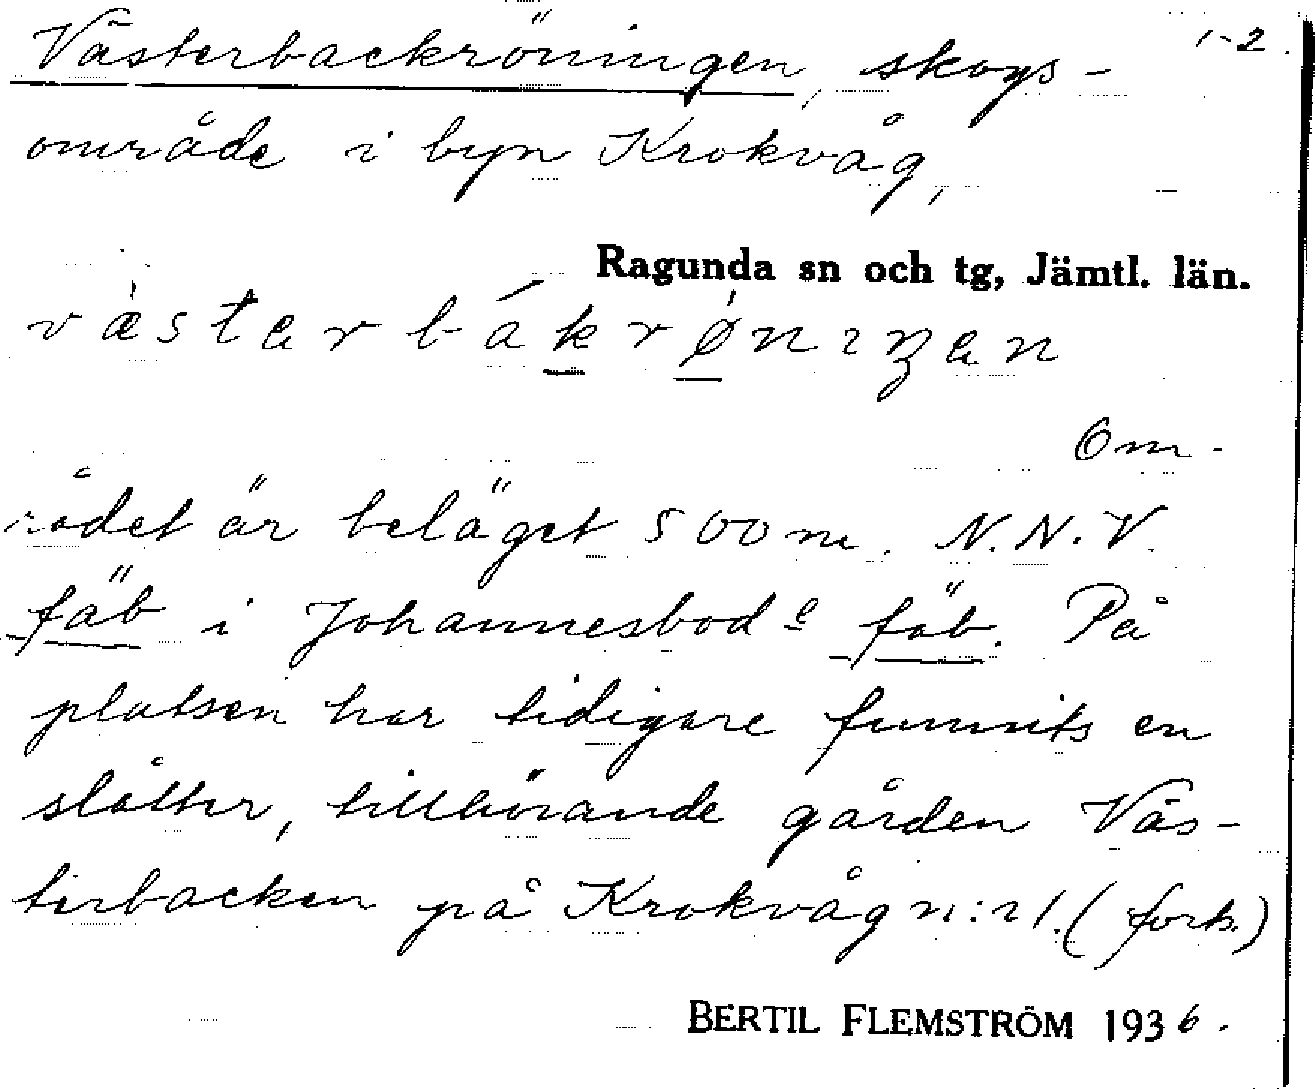 Västerbackröningen, skogs- 1-2.
område i byn Krokvåg,
Ragunda sn och tg, Jämtl. län.
væsterbákrønıŋen
Om-
rådet är beläget 500 m. N.N.V.
fäb i Johannesbode fäb. På
platsen har tidigare funnits en
slåtter, tillhörande gården Väs-
terbacken på Krokvåg n:r 1. (forts.)
BERTIL FLEMSTRÖM 1936.